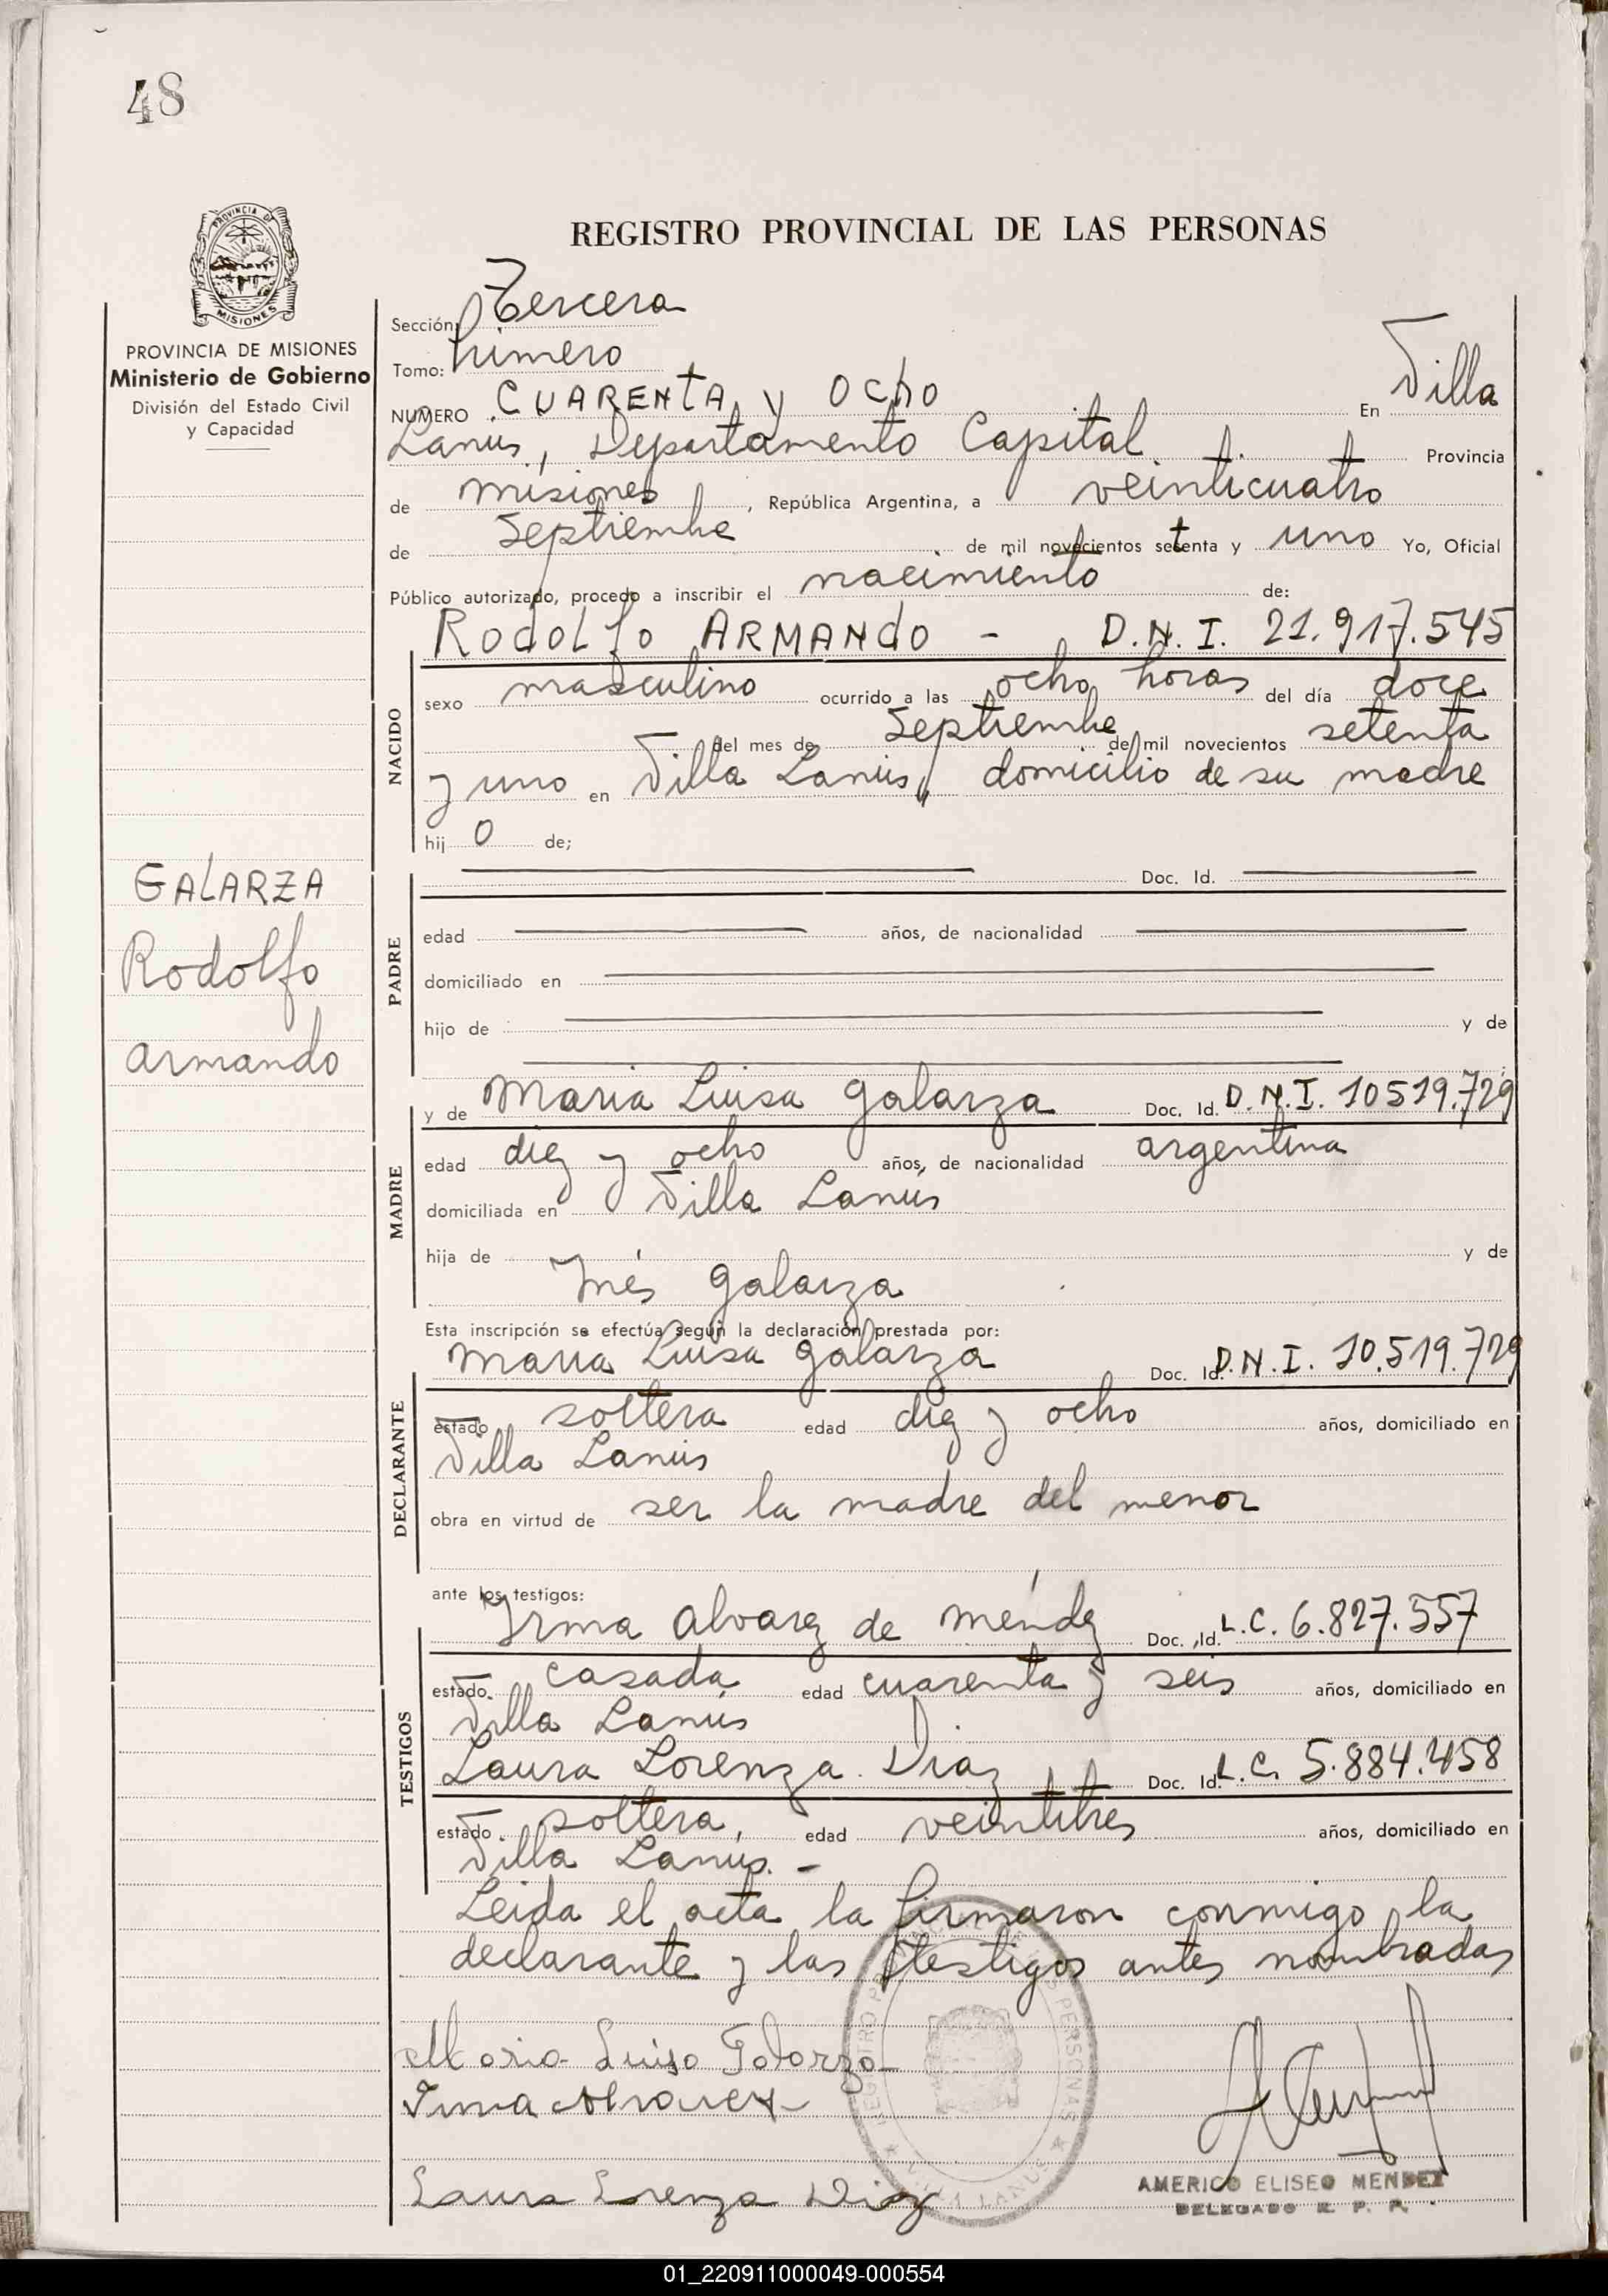 48
REGISTRO PROVINCIAL DE LAS PERSONAS
PROVINCIA DE MISIONES
MISIONES
PROVINCIA DE MISIONES
Ministerio de Gobierno
División del Estado Civil
y Capacidad
Sección: Tercera
Tomo: Primero
NUMERO CUARENTA y OCHO En Villa
Lanús, Departamento Capital Provincia
de Misiones, República Argentina, a veinticuatro
de Septiembre de mil novecientos setenta y uno Yo, Oficial
Público autorizado, procedo a inscribir el nacimiento de:
RODOLFO ARMANDO - D.N.I. 21.917.545
NACIDO
sexo masculino ocurrido a las ocho horas del día doce
del mes de Septiembre de mil novecientos setenta
y uno en Villa Lanús, domicilio de su madre
hij o de;
GALARZA
Rodolfo
Armando
PADRE
Doc. Id.
edad años, de nacionalidad
domiciliado en
hijo de y de
MADRE
y de Maria Luisa Galarza Doc. Id. D.N.I. 10519.729
edad diez y ocho años, de nacionalidad argentina
domiciliada en Villa Lanús
hija de y de
Inés Galarza
Esta inscripción se efectúa según la declaración prestada por:
DECLARANTE
Maria Luisa Galarza Doc. Id. D.N.I. 10.519.729
estado soltera edad diez y ocho años, domiciliado en
Villa Lanús
obra en virtud de ser la madre del menor
ante los testigos:
TESTIGOS
Irma Alvarez de Méndez Doc. Id. L.C. 6.827.557
estado casada edad cuarenta y seis años, domiciliado en
Villa Lanús
Laura Lorenza Diaz Doc. Id. L.C. 5.884.458
estado soltera, edad veintitres años, domiciliado en
Villa Lanús. -
Leida el acta la firmaron conmigo la
declarante y las testigos antes nombradas
Maria Luisa Galarza
Irma Alvarez
Laura Lorenza Diaz
AMERICO ELISEO MENDEZ
DELEGADO R. P. P.
01_220911000049-000554